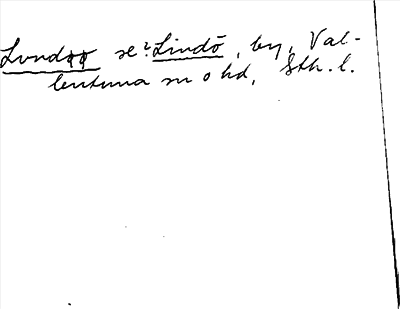 Lundϕϕ se? Lindō, by, Val-
lentuna sn o hd, Sth. l.